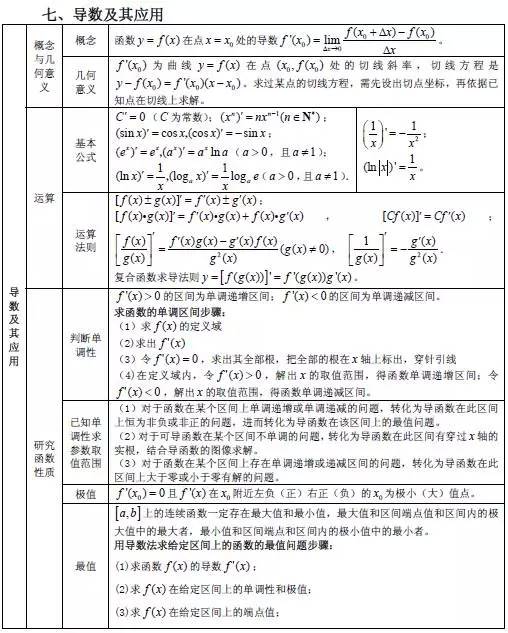 七、导数及其应用
导数及其应用
概念与几何意义
概念
函数 y=f(x) 在点 x=x₀ 处的导数 f'(x₀)=lim_{Δx→0} (f(x₀+Δx)−f(x₀))/Δx。
几何意义
f'(x₀) 为曲线 y=f(x) 在点 (x₀,f(x₀)) 处的切线斜率，切线方程是
y−f(x₀)=f'(x₀)(x−x₀)。求过某点的切线方程，需先设出切点坐标，再依据已
知点在切线上求解。
运算
基本公式
C'=0（C 为常数）；(xⁿ)'=nxⁿ⁻¹(n∈N*)；
(sin x)'=cos x,(cos x)'=−sin x；
(eˣ)'=eˣ,(aˣ)'=aˣ ln a（a>0，且 a≠1）；
(ln x)'=1/x,(log_a x)'=1/x log_a e（a>0,且 a≠1）.
(1/x)'=−1/x²；
(ln|x|)'=1/x。
运算法则
[f(x)±g(x)]'=f'(x)±g'(x)；
[f(x)•g(x)]'=f'(x)•g(x)+f(x)•g'(x)，[Cf(x)]'=Cf'(x)；
[f(x)/g(x)]'=(f'(x)g(x)−g'(x)f(x))/g²(x) (g(x)≠0)，[1/g(x)]'=−g'(x)/g²(x).
复合函数求导法则 y=[f(g(x))]'=f'(g(x))g'(x)。
研究函数性质
判断单调性
f'(x)>0 的区间为单调递增区间；f'(x)<0 的区间为单调递减区间。
求函数的单调区间步骤：
（1）求 f(x) 的定义域
（2)求出 f'(x)
（3）令 f'(x)=0，求出其全部根，把全部的根在 x 轴上标出，穿针引线
（4)在定义域内，令 f'(x)>0，解出 x 的取值范围，得函数单调递增区间；令
f'(x)<0，解出 x 的取值范围，得函数单调递减区间。
已知单调性求参数取值范围
（1）对于函数在某个区间上单调递增或单调递减的问题，转化为导函数在此区间
上恒为非负或非正的问题，进而转化为导函数在该区间上的最值问题。
（2）对于可导函数在某个区间不单调的问题，转化为导函数在此区间有穿过 x 轴的
实根，结合导函数的图像求解。
（3）对于函数在某个区间上存在单调递增或递减区间的问题，转化为导函数在此
区间上大于零或小于零有解的问题。
极值
f'(x₀)=0 且 f'(x) 在 x₀ 附近左负（正）右正（负）的 x₀ 为极小（大）值点。
最值
[a,b] 上的连续函数一定存在最大值和最小值，最大值和区间端点值和区间内的极
大值中的最大者，最小值和区间端点和区间内的极小值中的最小者。
用导数法求给定区间上的函数的最值问题步骤：
(1)求函数 f(x) 的导数 f'(x)；
(2)求 f(x) 在给定区间上的单调性和极值；
(3)求 f(x) 在给定区间上的端点值；